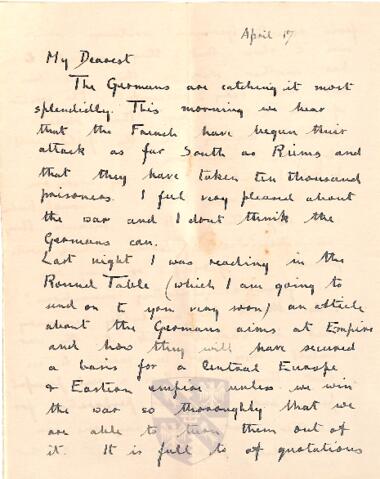 April 17
My Dearest
The Germans are catching it most
splendidly. This morning we hear
that the French have begun their
attack as far South as Rims and
that they have taken ten thousand
prisoners. I feel very pleased about
the war and I dont think the
Germans can.
Last night I was reading in the
Round Table (which I am going to
send on to you very soon) an article
about the Germans aims at Empire
and how they will have secured
a basis for a Central Europe
& Eastern empire unless we win
the war so thoroughly that we
are able to turn them out of
it. It is full to of quotations